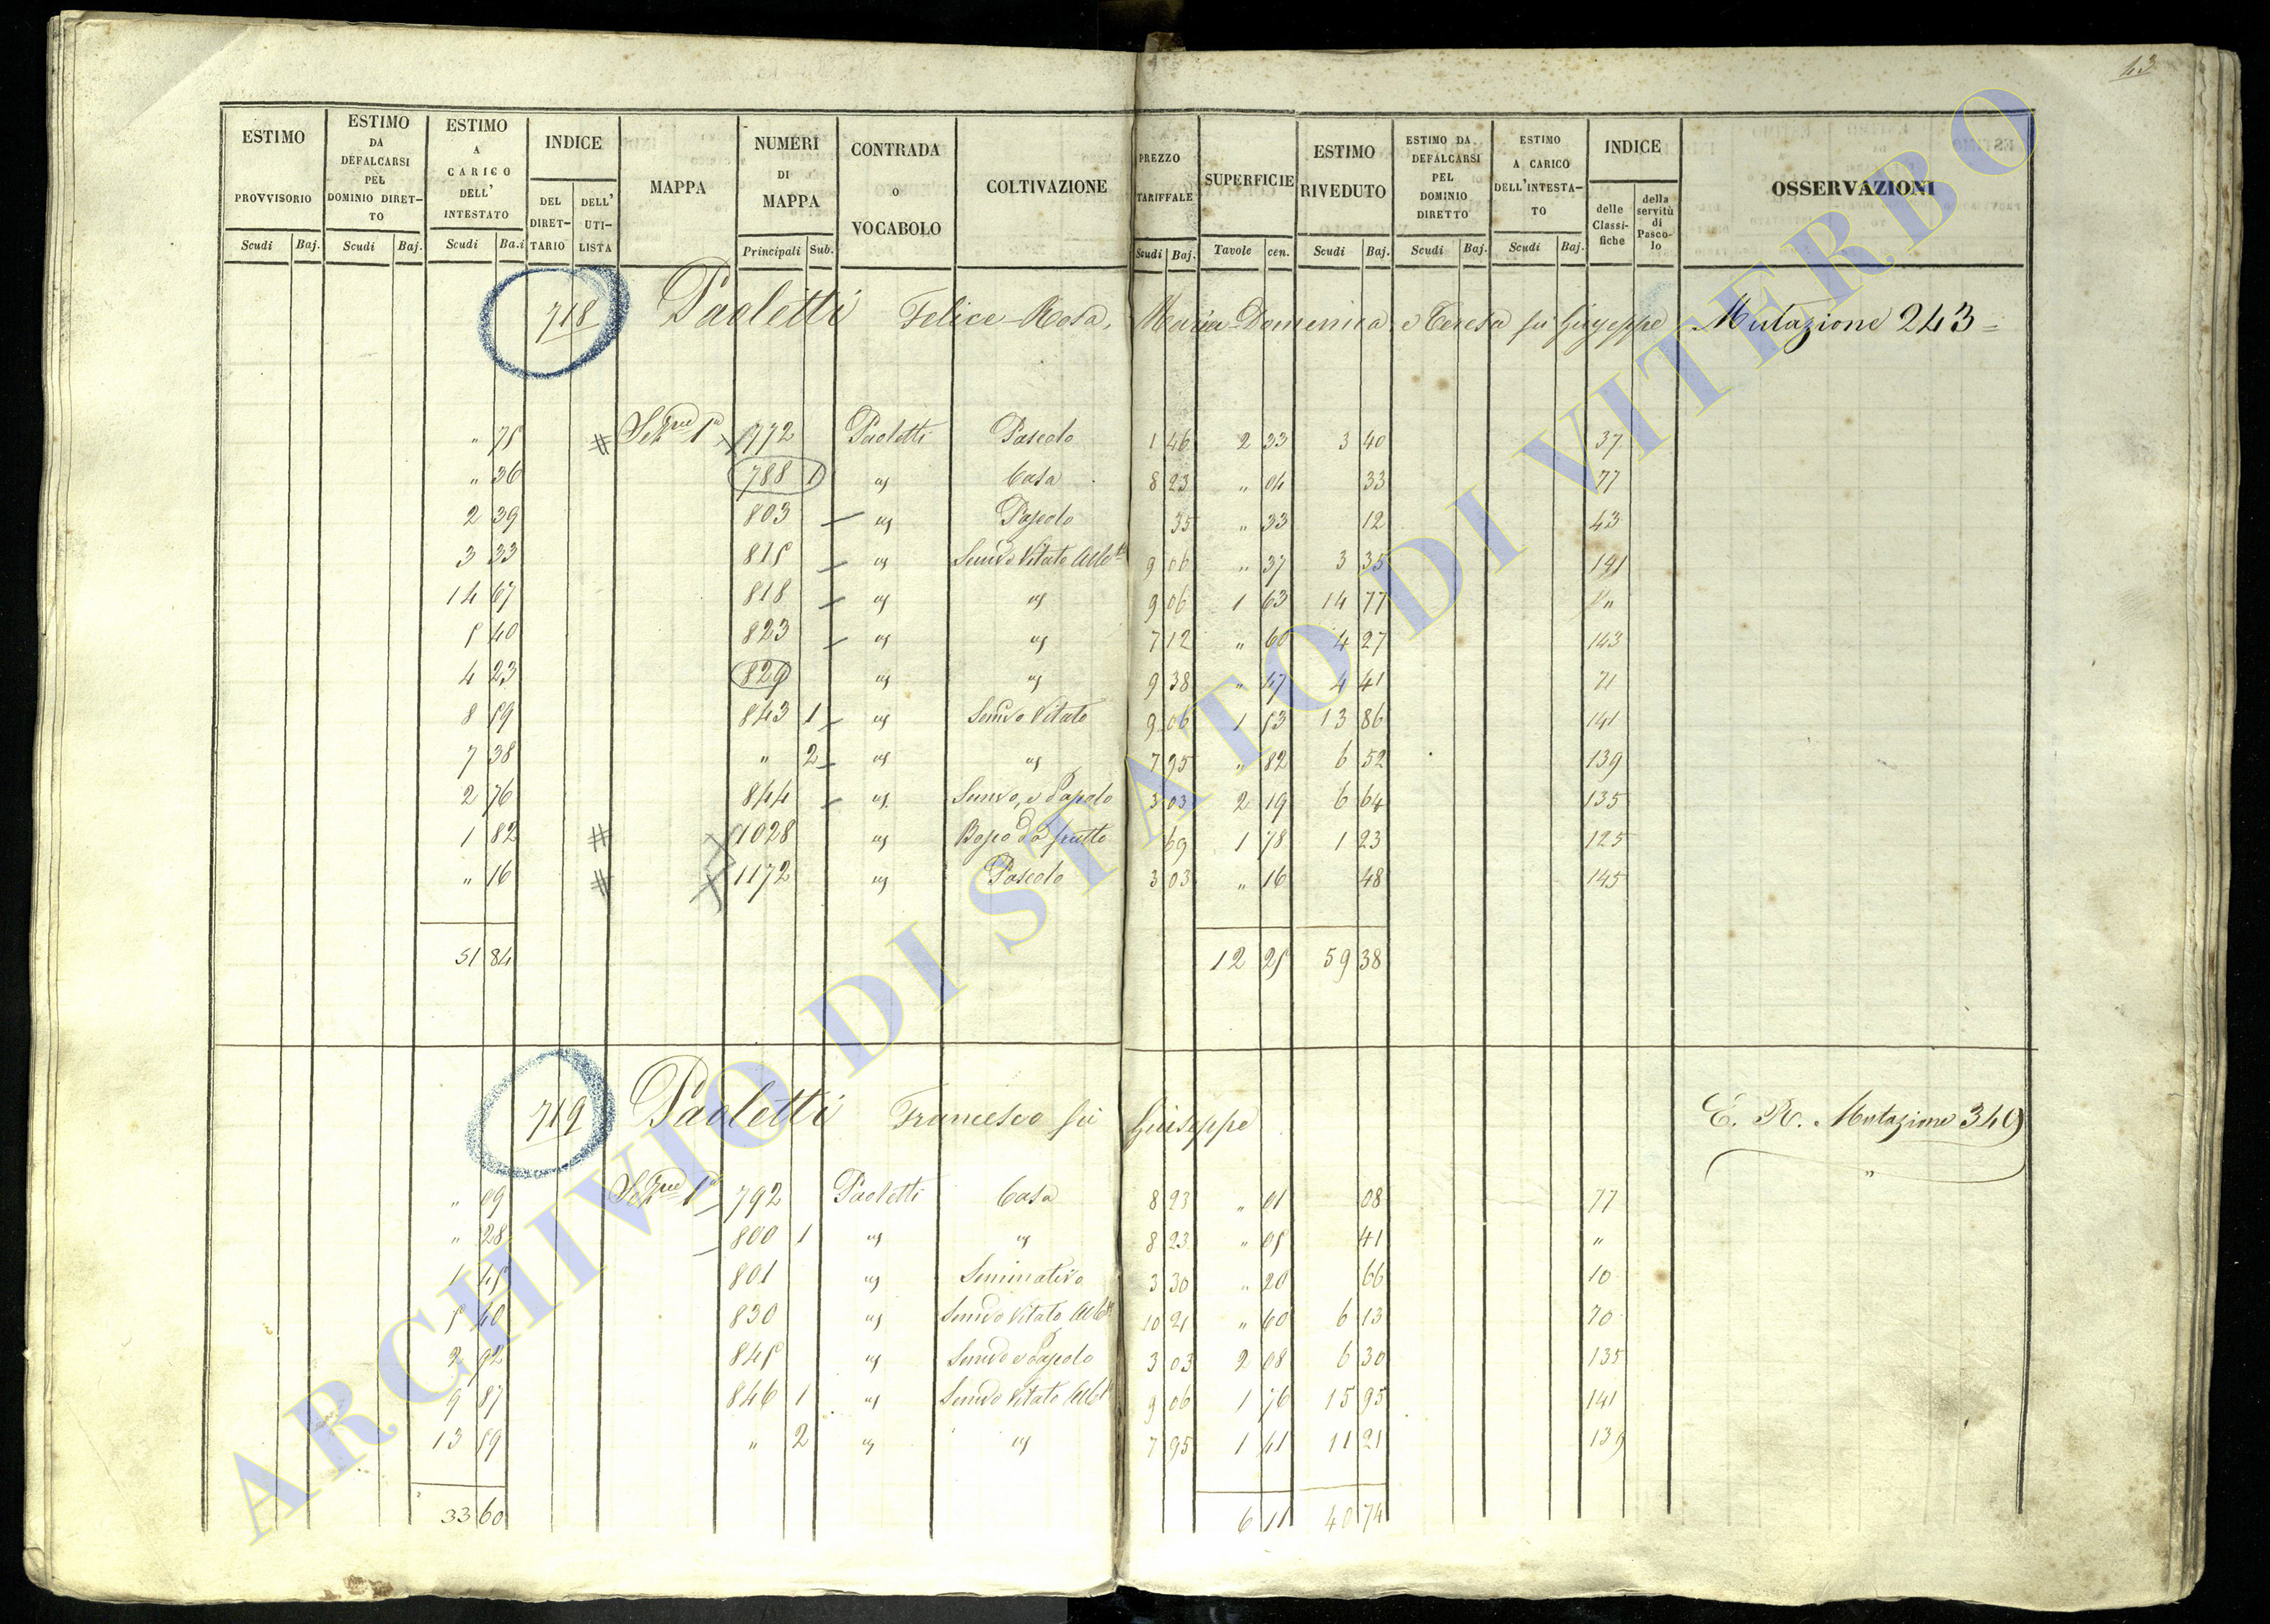 43
ESTIMO PROVVISORIO Scudi Baj.
ESTIMO DA DEFALCARSI PEL DOMINIO DIRETTO Scudi Baj.
ESTIMO A CARICO DELL' INTESTATO Scudi Ba.i
INDICE DEL DIRETTARIO DELL' UTILISTA
MAPPA
NUMERI DI MAPPA Principali Sub.
CONTRADA O VOCABOLO
COLTIVAZIONE
PREZZO TARIFFALE Scudi Baj.
SUPERFICIE Tavole cen.
ESTIMO RIVEDUTO Scudi Baj.
ESTIMO DA DEFALCARSI PEL DOMINIO DIRETTO Scudi Baj.
ESTIMO A CARICO DELL'INTESTATO Scudi Baj.
INDICE delle Classifiche della servitù di Pascolo
OSSERVAZIONI
718 Paoletti Felice Rosa, Maria Domenica e Teresa fu Giuseppe Mutazione 243 =
" 75 # Sez.ne 1a 772 Paoletti Pascolo 1 46 2 33 3 40 37
" 36 788 1 " Casa 8 23 " 04 33 77
2 39 803 " Pascolo 35 " 33 12 43
3 33 815 " Semvo Vitato Albto 9 06 " 37 3 35 141
14 67 818 " " 9 06 1 63 14 77 "
5 40 823 " " 7 12 " 60 4 27 143
4 23 829 " " 9 38 " 47 4 41 71
8 59 843 1 " Semvo Vitato 9 06 1 53 13 86 141
7 38 " 2 " " 7 95 " 82 6 52 139
2 76 844 " Semvo, e Pascolo 3 03 2 19 6 64 135
1 82 # 1028 " Bosco da frutto 69 1 78 1 23 125
" 16 # 1172 " Pascolo 3 03 " 16 48 145
51 84 12 25 59 38
719 Paoletti Francesco fu Giuseppe E. R. Mutazione 349
" 09 Sez.ne 1a 792 Paoletti Casa 8 23 " 01 08 77
" 28 800 1 " " 8 23 " 05 41 "
1 45 801 " Seminativo 3 30 " 20 66 10
5 40 830 " Semvo Vitato Albto 10 21 " 60 6 13 70
2 92 845 " Semvo e Pascolo 3 03 2 08 6 30 135
9 87 846 1 " Semvo Vitato Albto 9 06 1 76 15 95 141
13 59 " 2 " " 7 95 1 41 11 21 139
33 60 6 11 40 74
ARCHIVIO DI STATO DI VITERBO